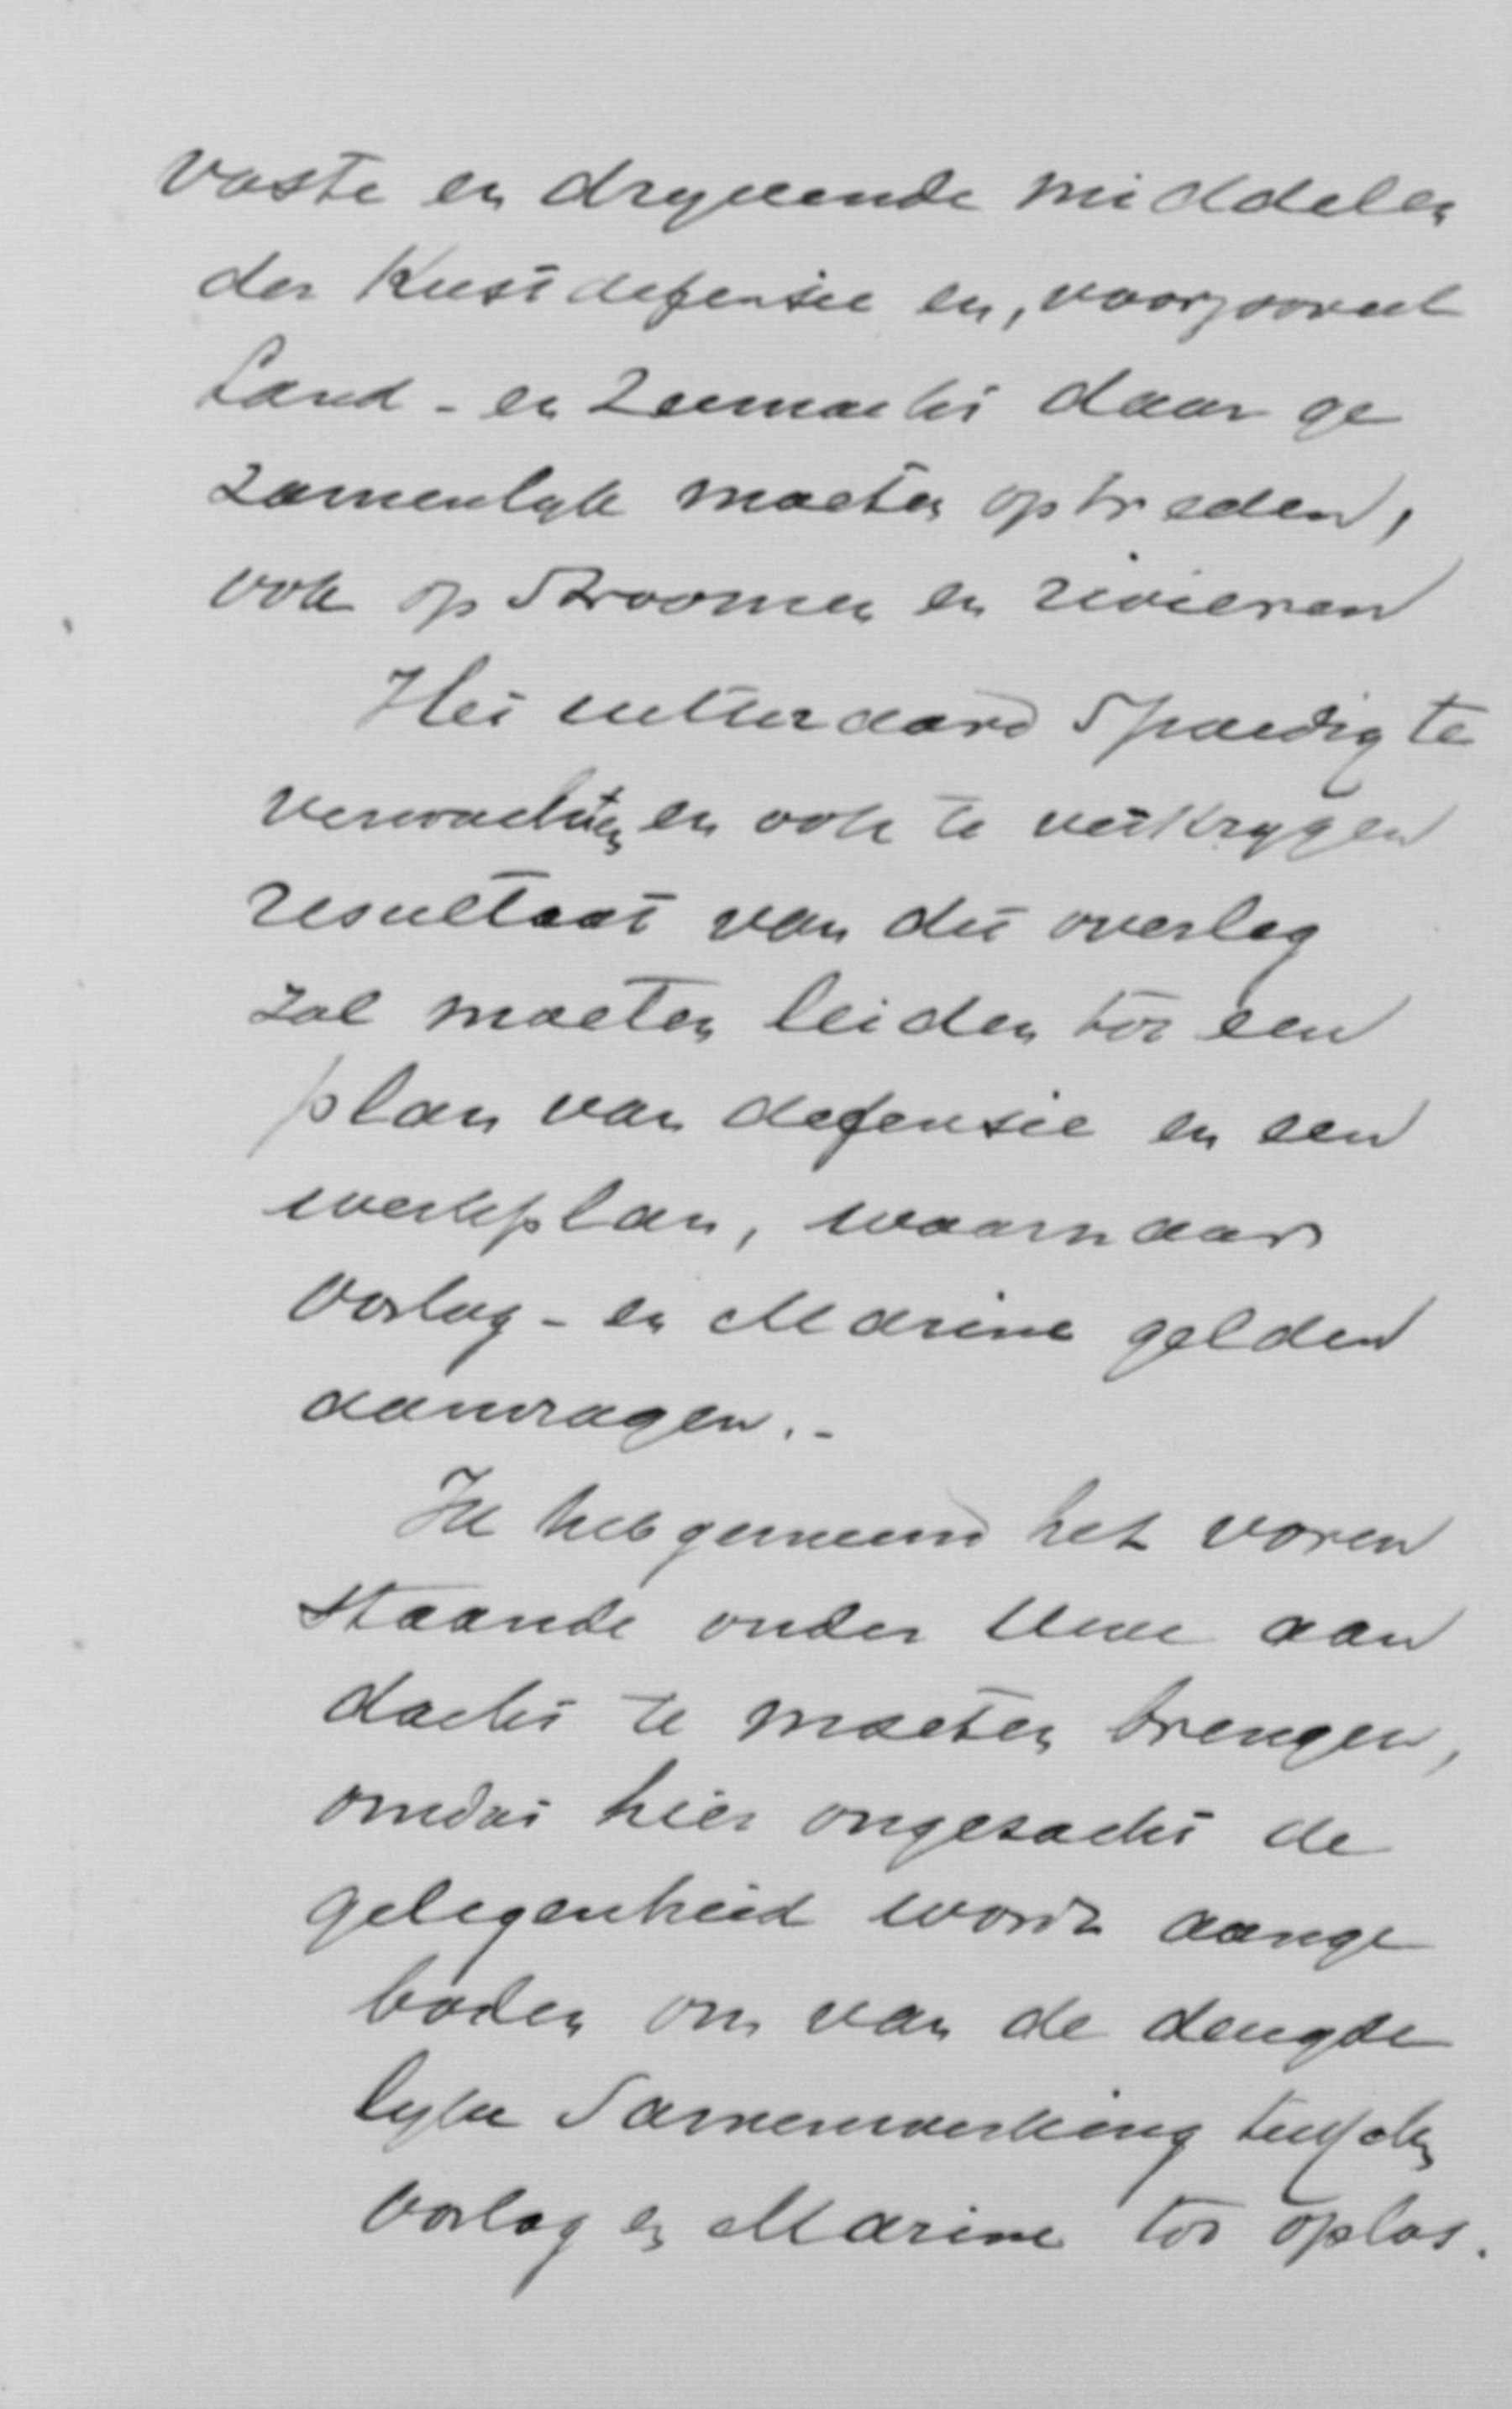 vaste en dryvende middelen
der Kustdefensie en, voorzooveel
Land - en Zeemacht daar ge
zamenlyk moeten optreden,
ook op Stroomen en rivieren
Het uitteraard spoedig te
verwachten en ook te verkrygen
resultaat van dit overleg
zal moeten leiden tot een
plan van defensie en een
werkplan, waarnaar
Oorlog - en Marine gelden
aanvragen. -
Ik heb gemeend het voren
staande onder Uwe aan
dacht te moeten brengen,
omdat hier ongezocht de
gelegenheid wordt aange
boden om van de deugde
lyke Samenwerking tusschen
Oorlog en Marine tot oplos.